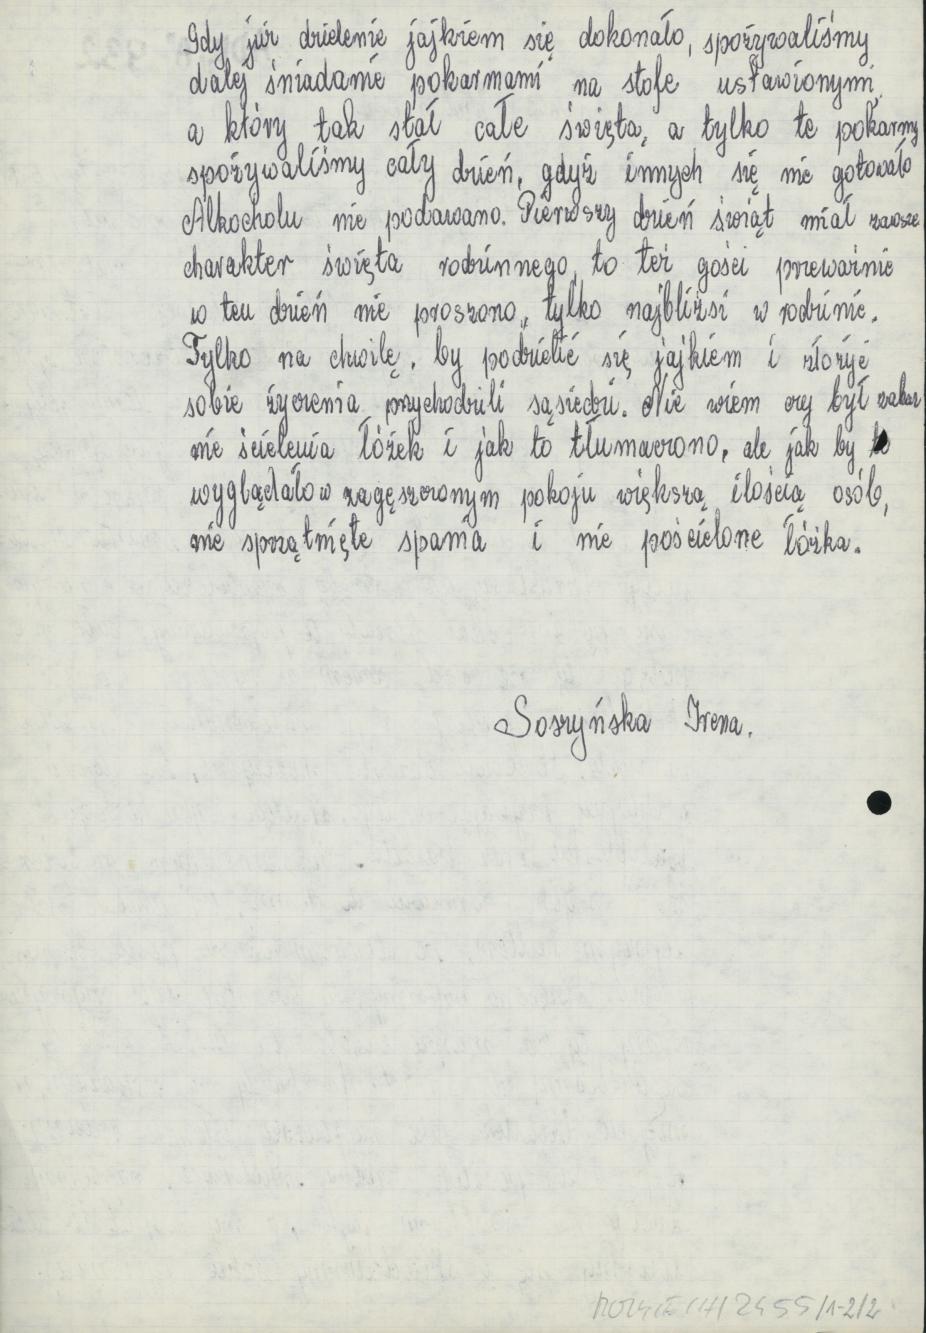 Gdy już dzielenie jajkiem się dokonało, spożywaliśmy
dalej śniadanie pokarmami na stole ustawionymi,
a który tak stał całe święta, a tylko te pokarmy
spożywaliśmy cały dzień, gdyż innych się nie gotowało
Alkocholu nie podawano. Pierwszy dzień świąt miał zawsze
charakter święta rodzinnego, to też gości przeważnie
w ten dzień nie proszono, tylko najbliżsi w rodzinie.
Tylko na chwilę, by podzielić się jajkiem i złożyć
sobie życzenia przychodzili sąsiedzi. Nie wiem czy był zakaz
nie ścielenia łóżek i jak to tłumaczono, ale jak by to
wyglądało w zagęszczonym pokoju większą ilością osób,
nie sprzątnięte spania i nie pościelone łóżka.
Soszyńska Irena.
2455/1-2/2